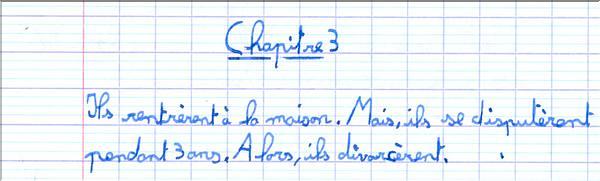 Chapitre 3
Ils rentrèrent à la maison. Mais, ils se disputèrent
pendant 3 ans. Alors, ils divorcèrent.